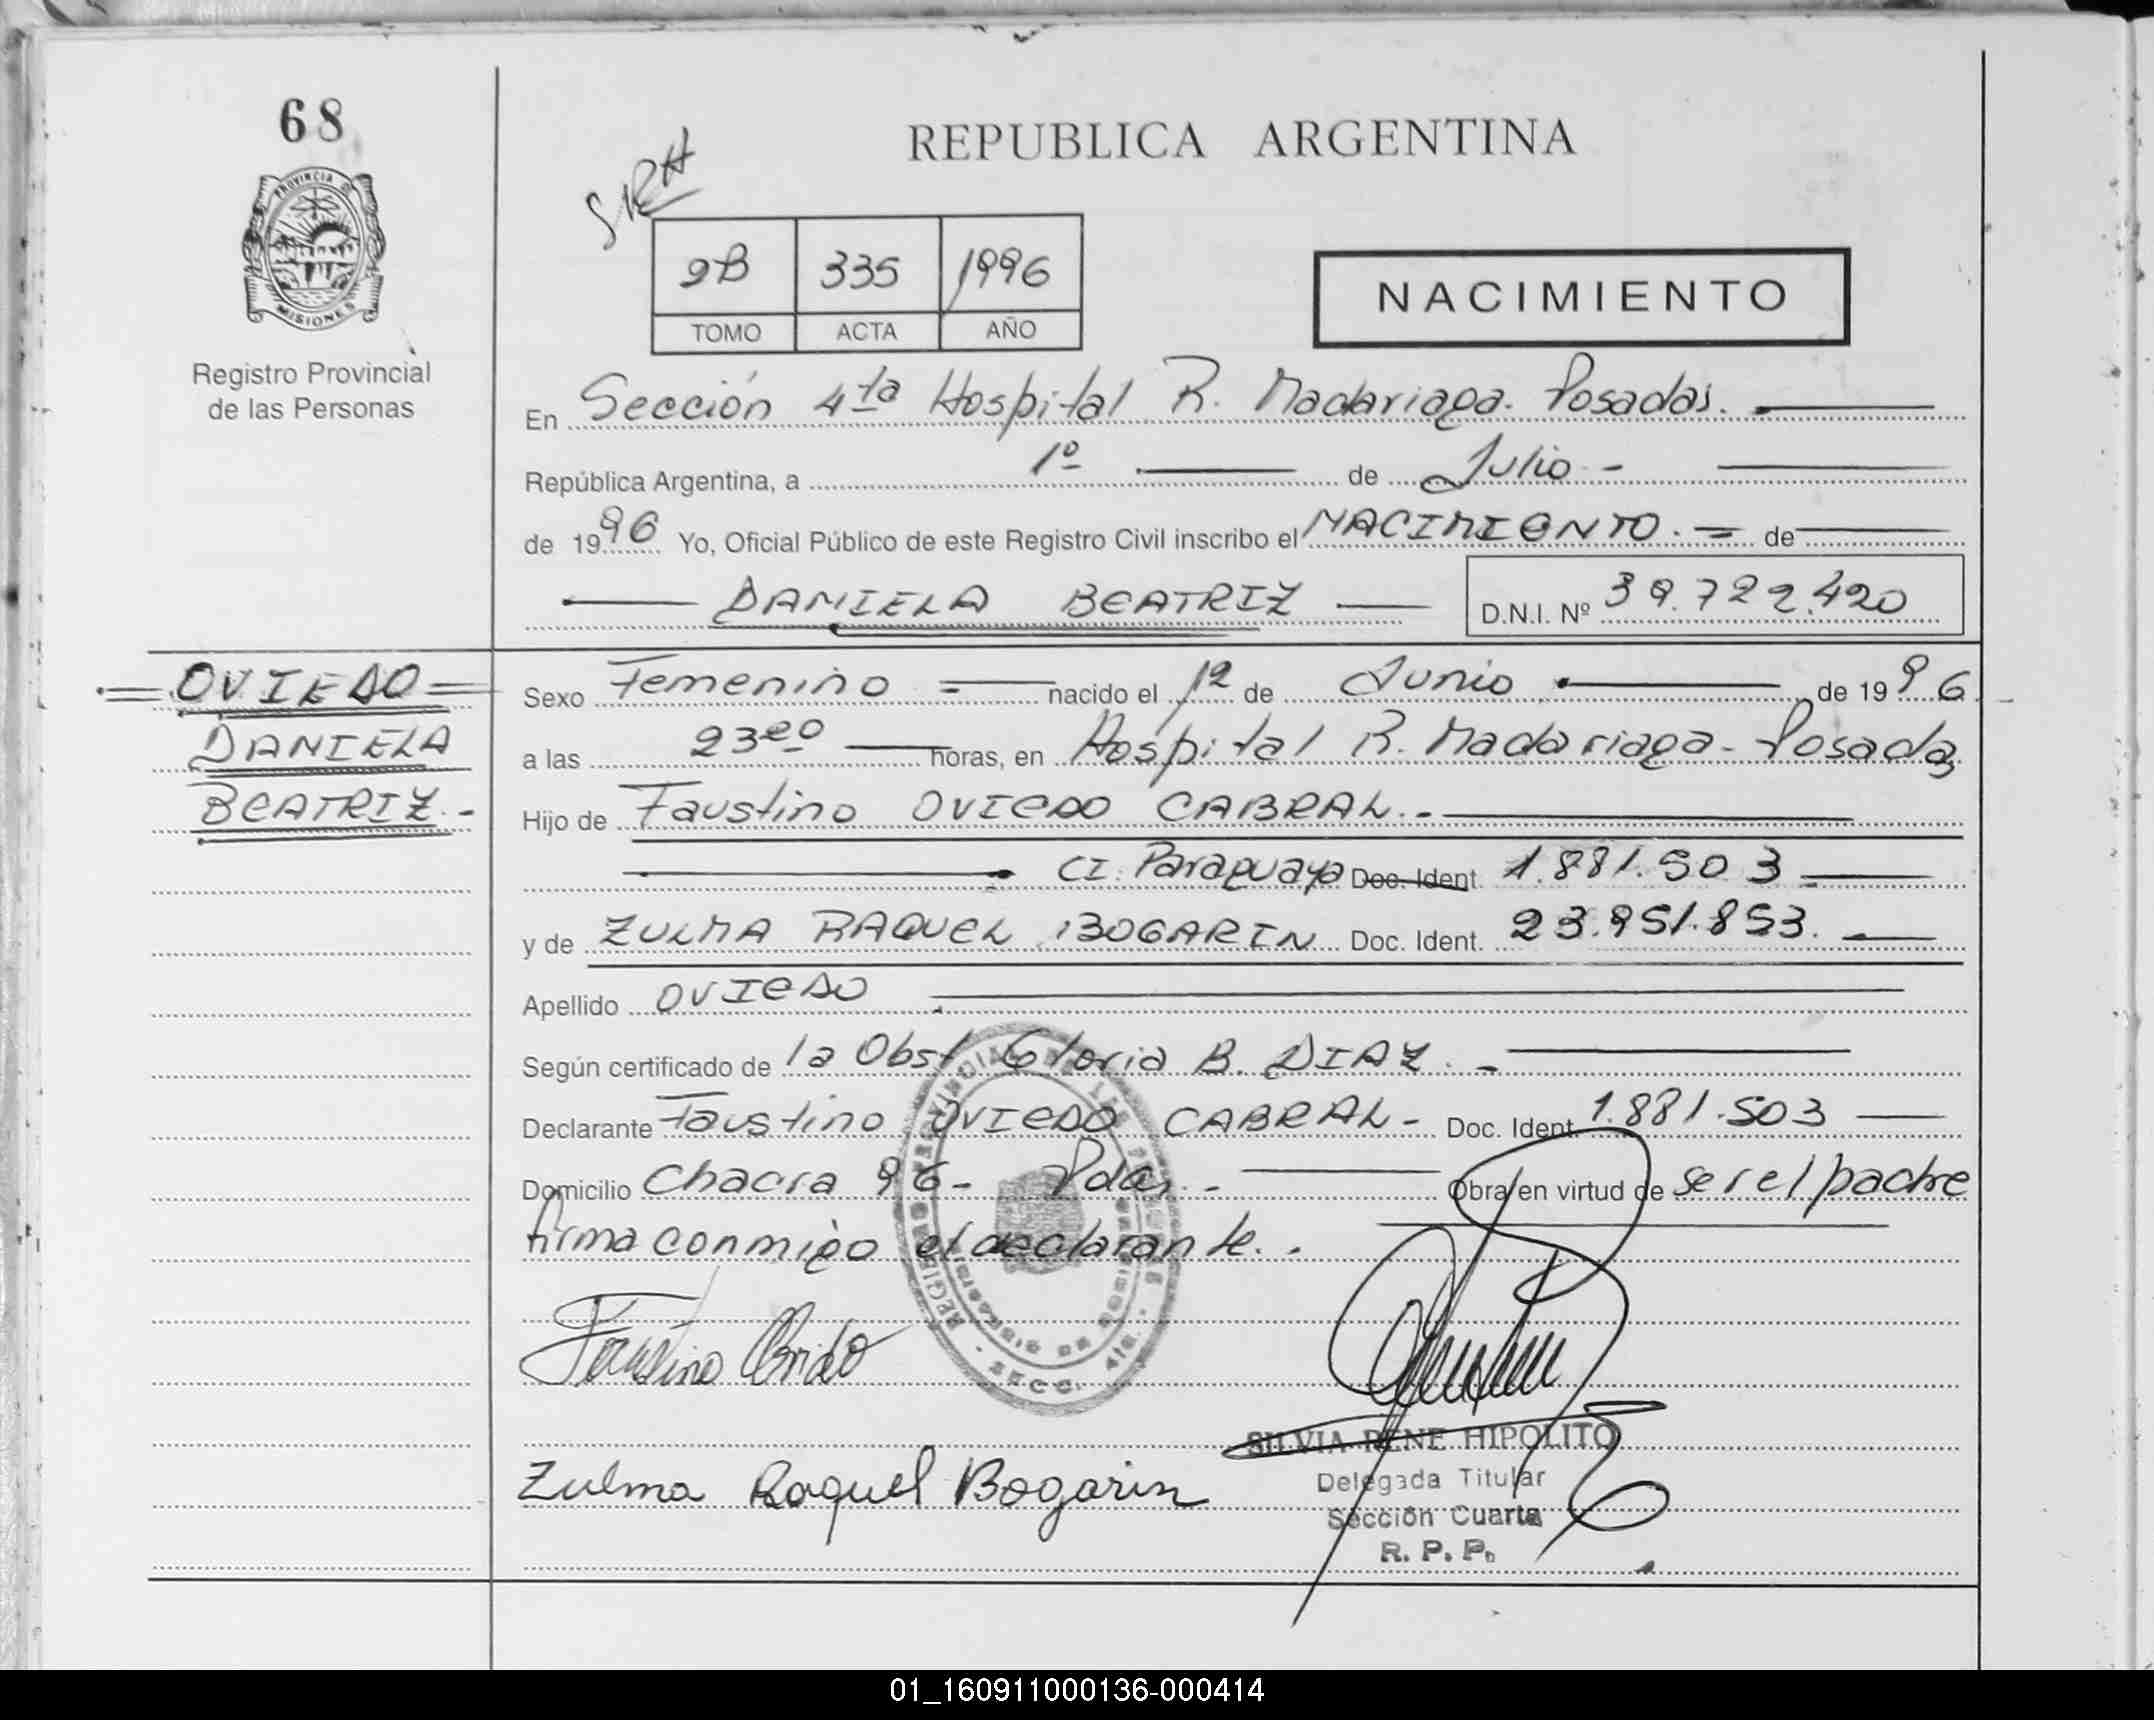 68
PROVINCIA DE
MISIONES
Registro Provincial
de las Personas
REPUBLICA ARGENTINA
SRH
2B 335 1996
TOMO ACTA AÑO
NACIMIENTO
En Sección 4ta Hospital R. Madariaga. Posadas.
República Argentina, a 1º de Julio -
de 1996 Yo, Oficial Público de este Registro Civil inscribo el NACIMIENTO. = de
DANIELA BEATRIZ D.N.I. Nº 39.722.420
= OVIEDO =
DANIELA
BEATRIZ.-
Sexo Femenino = nacido el 12 de Junio de 1996
a las 23²⁰ horas, en Hospital R. Madariaga - Posadas
Hijo de Faustino OVIEDO CABRAL.-
CI. Paraguaya Doc. Ident. 1.881.503
y de ZULMA RAQUEL BOGARIN Doc. Ident. 23.951.853.
Apellido OVIEDO
Según certificado de la Obst Gloria B. DIAZ. -
Declarante Faustino OVIEDO CABRAL - Doc. Ident. 1.881.503
Domicilio Chacra 96- Pdas. - Obra en virtud de ser el padre
firma conmigo el declarante. .
Faustino Oviedo
SILVIA RENE HIPOLITO
Delegada Titular
Sección Cuarta
R. P. P.
Zulma Raquel Bogarin
01_160911000136-000414